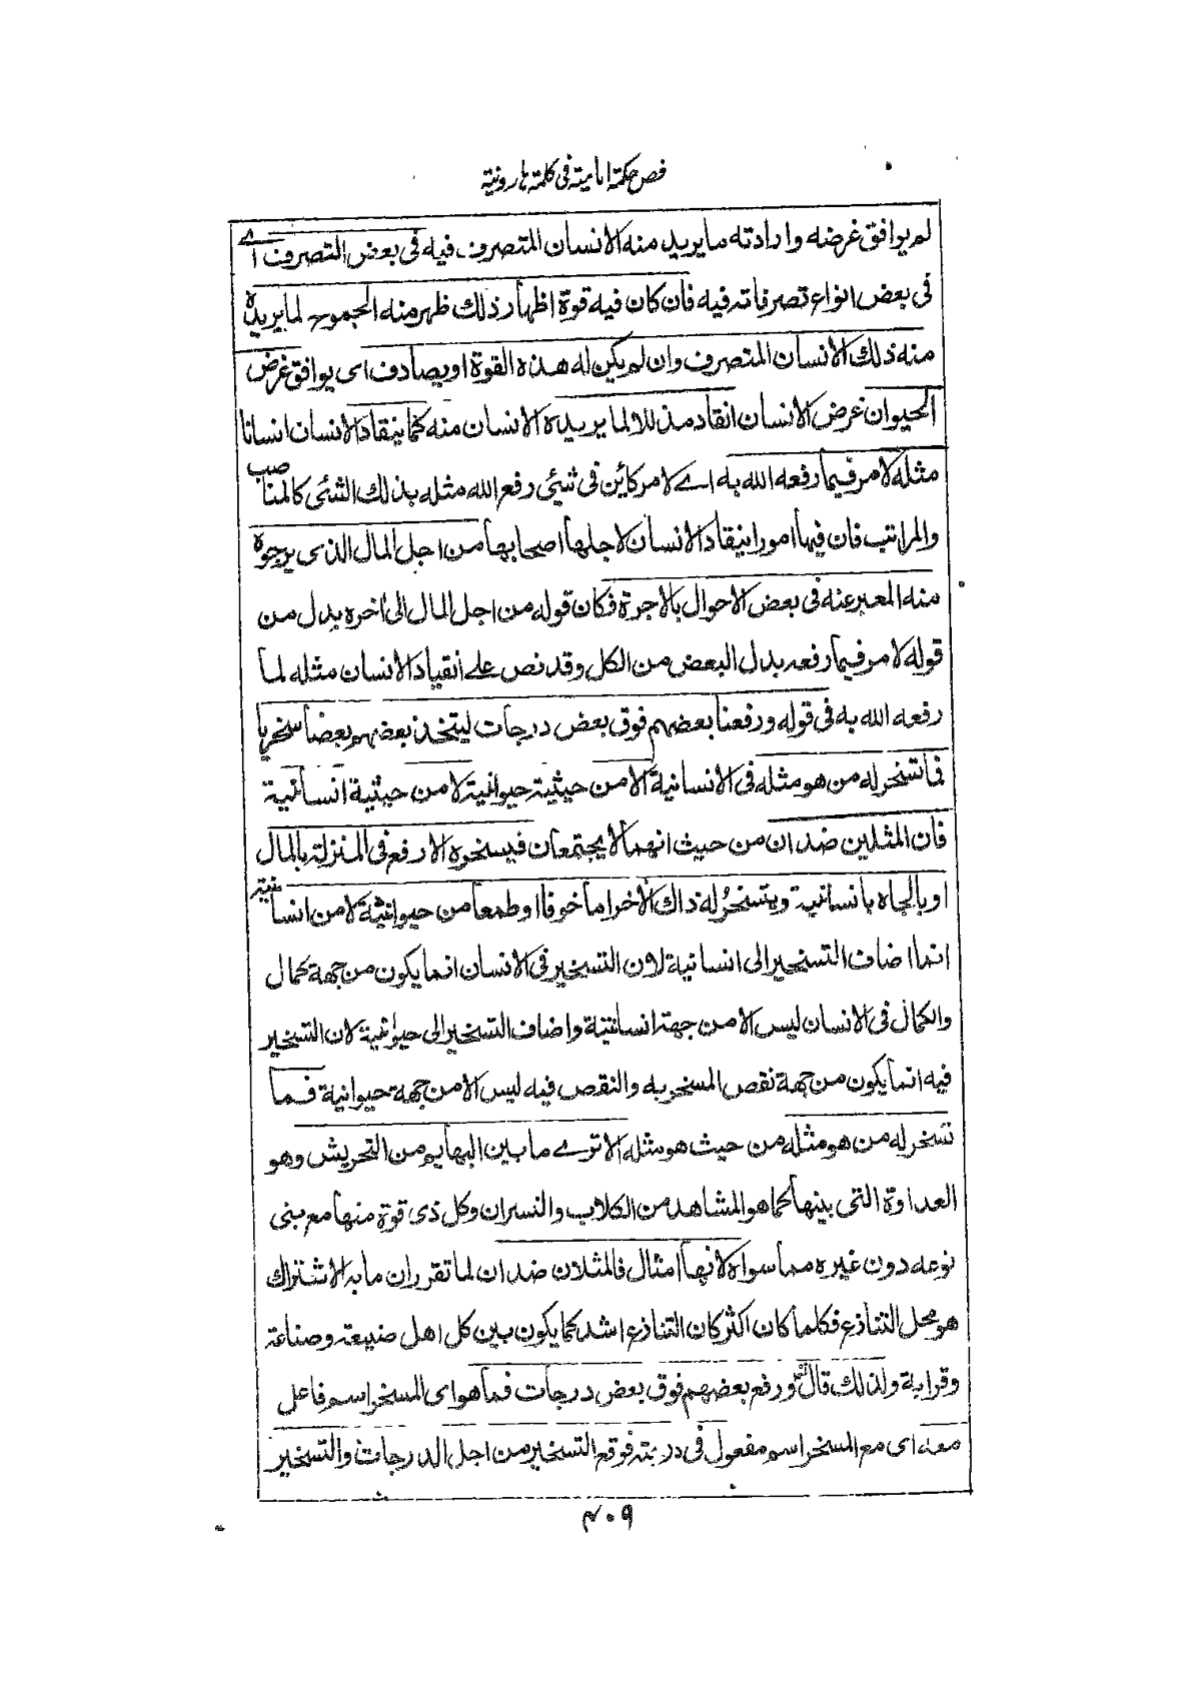 فص حكمة امامية فى كلمة هارونية
لم يوافق غرضه وارادته ما يريد منه الانسان المتصرف فيه فى بعض التصرف اے
فى بعض انواع تصرفاته فيه فان كان فيه قوة اظهار ذلك ظهر منه الجموح لما يريده
منه ذلك الانسان المتصرف وان لم يكن له هذه القوة او يصادف اى يوافق غرض
الحيوان غرض الانسان انقاد مذللا لما يريده الانسان منه كما ينقاد الانسان انسانا
مثله لامر فيما رفعه الله به اے لامر كائن فى شيئ رفع الله مثله بذلك الشئى كالمناصب
والمراتب فان فيها امورا ينقاد الانسان لاجلها اصحابها من اجل المال الذى يرجوه
منه المعبر عنه فى بعض الاحوال بالاجرة فكان قوله من اجل المال الى آخره بدل من
قوله لامر فيما رفعه بدل البعض من الكل وقد نص على انقياد الانسان مثله لما
رفعه الله به فى قوله ورفعنا بعضهم فوق بعض درجات ليتخذ بعضهم بعضا سخريا
فما تسخر له من هو مثله فى الانسانية الا من حيثية حيوانية لا من حيثية انسانية
فان المثلين ضدان من حيث انهما لا يجتمعان فيسخره الارفع فى المنزلة بالمال
او بالجاه بانسانية ويتسخر له ذاك الآخر اما خوفا او طمعا من حيوانيته لا من انسانيته
انما اضاف التسخير الى انسانية لان التسخير فى الانسان انما يكون من جهة كمال
والكمال فى الانسان ليس الا من جهة انسانيتة واضاف التسخير الى حيوانية لان التسخير
فيه انما يكون من جهة نقص المسخر به والنقص فيه ليس الا من جهة حيوانية فما
تسخر له من هو مثله من حيث هو مثله الا ترے ما بين البهايم من التحريش وهو
العداوة التى بينها كما هو المشاهد من الكلاب والنسران وكل ذى قوة منها مع بنى
نوعه دون غيره مما سواه لانها امثال فالمثلان ضدان لما تقرر ان ما به الاشتراك
هو محل التنازع فكلما كان اكثر كان التنازع اشد كما يكون بين كل اهل ضيعة وصناعة
وقرابة ولذلك قال ورفع بعضهم فوق بعض درجات فما هو اى المسخر اسم فاعل
معه اى مع المسخر اسم مفعول فى درجته فوقع التسخير من اجل الدرجات والتسخير
۴۰۹